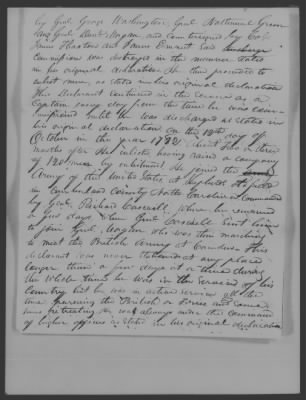 by Genl George Washington, Genl Nathaniel Green
and Genl Danl Morgan and countersigned by Cols
James Thaxton and James Emmet said
Commission was destroyed in the manner stated
in his original declaration. He then proceeded to
enlist men, as stated in his original declaration
This declarant continued in the service as a
Captain every day from the time he was com-
missioned until he was discharged as stated in
his original declaration on the 12th day of
October in the year 1782. About two or three
months after his enlisting having raised a company
of 120 men by enlistment. He joined the
Army of the United States at
in Cumberland County North Carolina Commanded
by Genl Richard Caswell, where he remained
a few days, when Genl Caswell sent him
to join Genl Morgan who was then marching
to meet the British Army at Camden. This
declarant was never stationed at any place
longer than a few days at a time during
the whole time he was in the service of his
Country but he was in active service all the
time pursuing the British or Tories and some-
times retreating. He was always under the command
of higher officers as stated in his original declaration